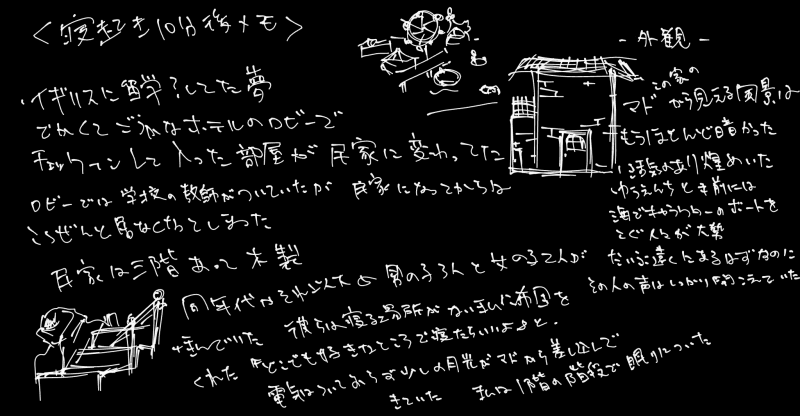 ＜寝起き10分後メモ＞
・イギリスに留学?してた夢
でかくてごうかなホテルのロビーで
チェックインして入った部屋が民家に変わってた
ロビーでは学校の教師がついていたが 民家になってからは
こつぜんと居なくなってしまった
民家は三階あって木製
同年代かそれ以下の男の子3人と女の子2人が
住んでいた 彼らは寝る場所がないまいに布団を
くれた 「どこでも好きなところで寝たらいいよ」と。
電気はついておらず少しの月光がマドから差し込んで
きていた 私は1階の階段で眠りについた
-外観-
この家の
マドから見える風景は
もうほとんど暗かった
活気のあり煌めいた
ゆうえんちと手前には
海でキャラクターのボートを
こぐ人々が大勢
だいぶ遠くにあるはずなのに
その人の声はしっかり聞こえていた